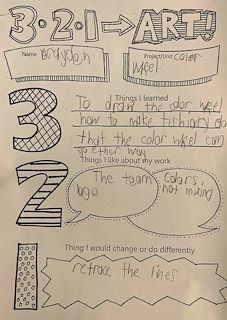 3·2·1→ART!
Name Brayden
Project/Unit color
wheel
3
Things I learned
To draw the color wheel
how to make tertiary co
that the color wheel can
go ether way
2
Things I like about my work
The team
logo
Colors,
not mixing
1
Thing I would change or do differently
retrace the lines